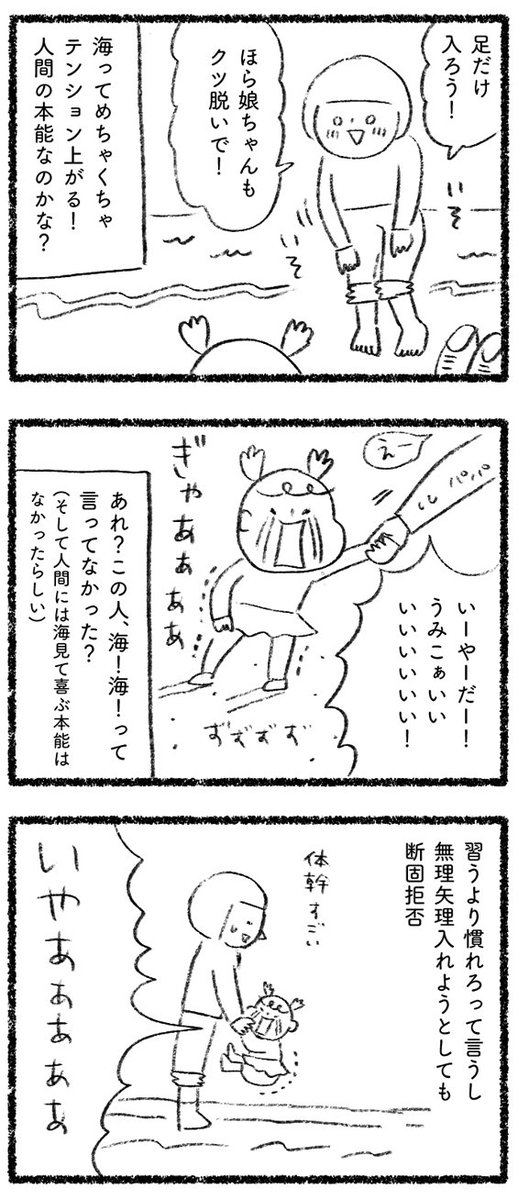 足だけ
入ろう！
いそ
いそ
ほら娘ちゃんも
クツ脱いで！
海ってめちゃくちゃ
テンション上がる！
人間の本能なのかな？
えー
パパ
いーやーだー！
うみこぁいい
いいいいいい！
ぎゃあぁぁぁ
ずずずず
あれ？この人、海！海！って
言ってなかった？
（そして人間には海見て喜ぶ本能は
なかったらしい）
習うより慣れろって言うし
無理矢理入れようとしても
断固拒否
体幹すごい
いやあぁぁぁぁ